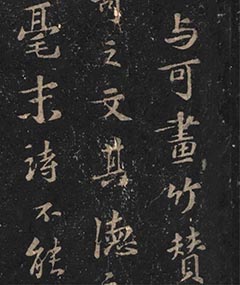 与可畫竹賛
可之文其德
毫末詩不能